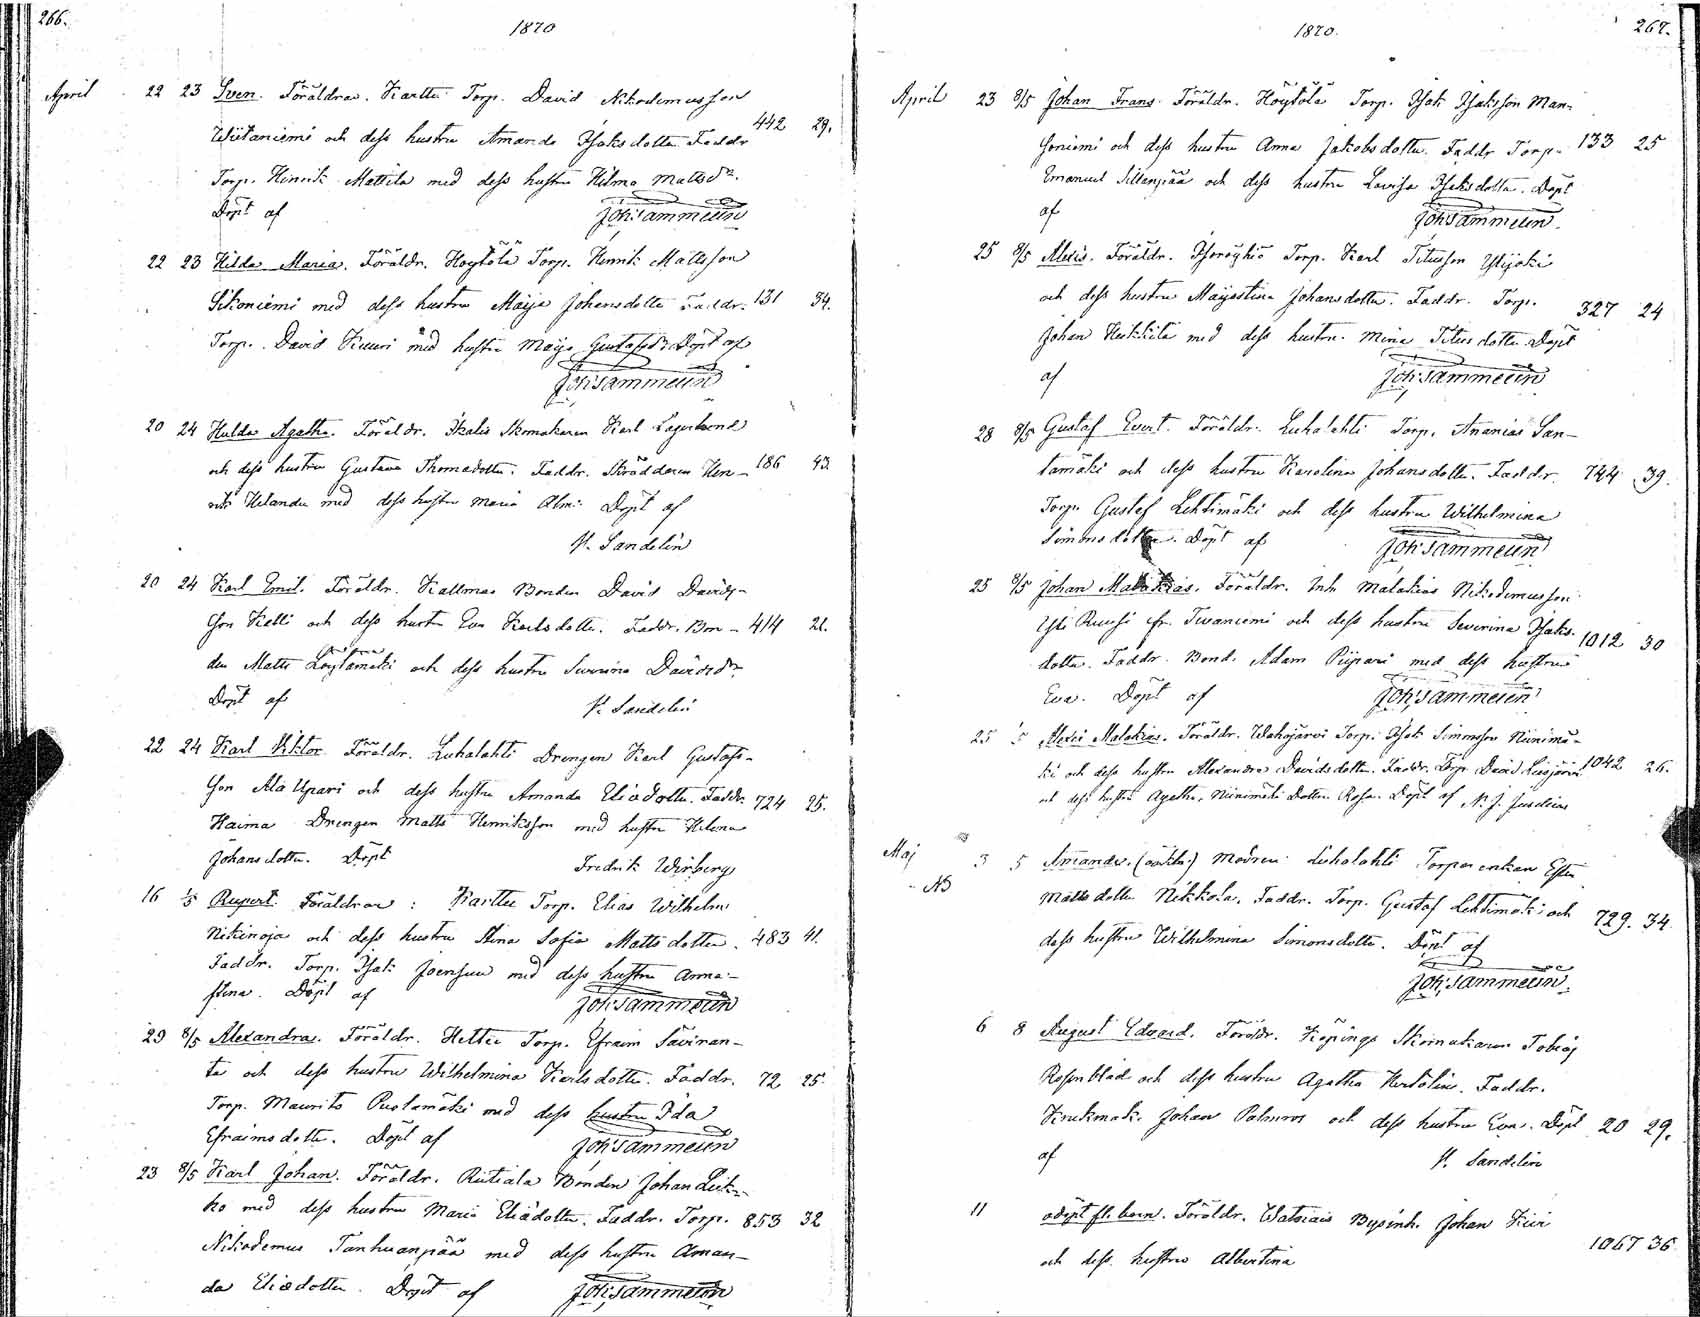 266.
1870
April 22 23 Sven. Föräldrar. Karttu Torp. David Nikodemusson
Wiitaniemi och dess hustru Amanda Isaksdotter Faddr 442 29.
Torp. Henrik Mattila med dess hustru Hilma Mattsdr.
Döpt af Joh: Sammelin
22 23 Hilda Maria. Föräldr. Höytölä Torp. Henrik Mattsson
Sikoniemi med dess hustru Maija Johansdotter Faddr. 131 34.
Torp. David Kuuri med hustru Maija Gustafsdr. Döpt af
Joh: Sammelin
20 24 Hulda Agatha. Föräldr. Ikalis Skomakaren Karl
och dess hustru Gustava Thomasdotter. Faddr. Skräddaren Hen- 186 43.
rik Helander med dess hustru Maria Alm: Döpt af
K. Sandelin
20 24 Karl Emil. Föräldr. Kallmaa Bonden David Davids-
son Kelli och dess hustru Eva Karlsdotter. Faddr. Bon- 414 21.
den Matts Löytämäki och dess hustru Severina Davidsdr.
Döpt af K. Sandelin
22 24 Karl Viktor. Föräldr. Luhalahti Drengen Karl Gustafs-
son Ala Upari och dess hustru Amanda Eliædotter. Faddr. 724 25.
Haima Drengen Matts Henriksson med hustru Helena
Johansdotter. Döpt Fredrik Wirberg
16 1/5 Rupert. Föräldrar: Karttu Torp. Elias Wilhelm
Nikinoja och dess hustru Stina Sofia Mattsdotter. 483 41.
Faddr. Torp. Isak Joensuu med dess hustru Anna-
stina. Döpt af Joh: Sammelin
29 8/5 Alexandra. Föräldr. Hettee Torp. Efraim Saviran-
ta och dess hustru Wilhelmina Karlsdotter. Faddr. 72 25.
Torp. Maurits Pustamäki med dess hustru Ida
Efraimsdotter. Döpt af Joh: Sammelin
23 8/5 Karl Johan. Föräldr. Riitiala Bonden Johan
ko med dess hustru Maria Eliædotter. Faddr. Torp. 853 32
Nikodemus Tanhuanpää med dess hustru Aman-
da Eliædotter. Döpt af Joh: Sammelin
267.
1870.
April 23 8/5 Johan Frans. Föräldr. Höytölä Torp. Isak Isaksson Man-
soniemi och dess hustru Anna Jakobsdotter. Faddr Torp. 133 25
Emanuel Sillanpää och dess hustru Lovisa Isaksdotter. Döpt
af Joh: Sammelin
25 8/5 Alexis. Föräldr. Torp. Karl Titusson Ylijoki
och dess hustru Maijastina Johansdotter. Faddr. Torp. 327 24
Johan Heikkilä med dess hustru Mina Titusdotter. Döpt
af Joh: Sammelin
28 8/5 Gustaf Evert. Föräldr. Luhalahti Torp. Ananias San-
tamäki och dess hustru Karolina Johansdotter. Faddr. 744 39.
Torp. Gustaf Lehtimäki och dess hustru Wilhelmina
Simonsdotter. Döpt af Joh: Sammelin
25 8/5 Johan Malakias. Föräldr. Inh Malakias Nikodemusson
Yli Ruusi fr. Tevaniemi och dess hustru Severina Isaks- 1012 30
dotter. Faddr. Bond. Adam Piipari med dess hustru
Eva. Döpt af Joh: Sammelin
25 5 Alexis Malakias. Föräldr. Wahojärvi Torp. Isak Simonsson Niinimä-
ki och dess hustru Alexandra Davidsdotter. Faddr. Torp. David 1042 26.
och dess hustru Agatha, Niinimäki Dotter Rosa. Döpt af N. J.
Maj 3 5 Amanda. (oäkta:) Modren Luhalahti Torpareenkan Ester
NB Mattsdotter Nikkola. Faddr. Torp. Gustaf Lehtimäki och 729. 34
dess hustru Wilhelmina Simonsdotter. Döpt af
Joh: Sammelin
6 8 August Edvard. Föräldr. Köpings Skomakaren Tobias
Rosenblad och dess hustru Agatha Hertolin. Faddr.
Krukmak. Johan Palmroos och dess hustru Eva. Döpt 20 29.
af K. Sandelin
11 odöpt fl. barn. Föräldr. Watsiais Bysinh. Johan
och dess hustru Albertina 1067 36